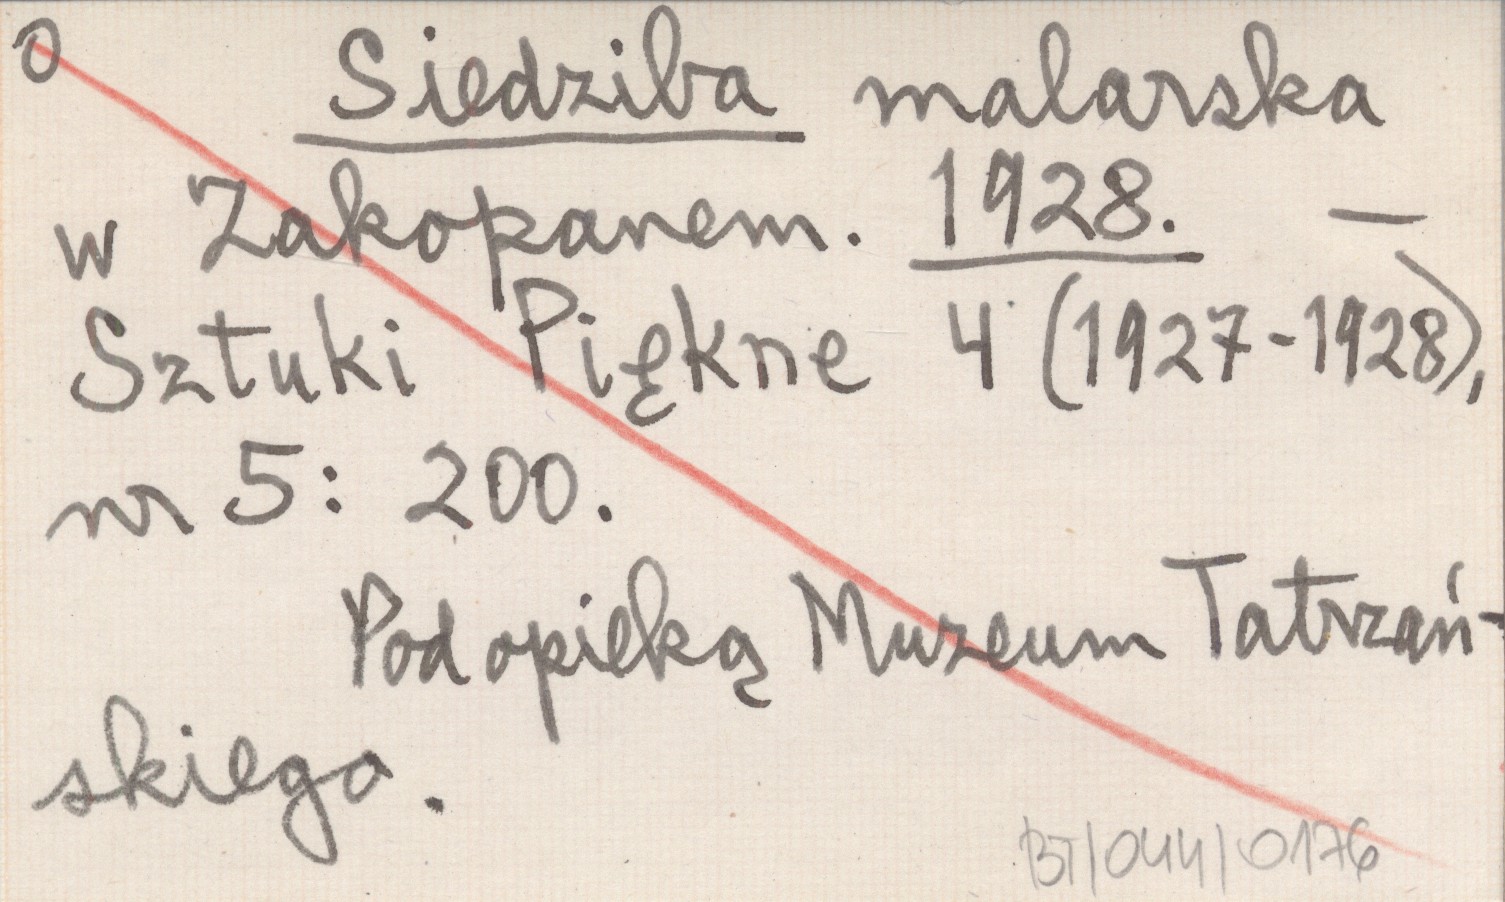 0 Siedziba malarska
w Zakopanem. 1928. —
Sztuki Piękne 4 (1927-1928),
nr 5: 200.
Pod opieką Muzeum Tatrzań-
skiego.
BT/044/0176